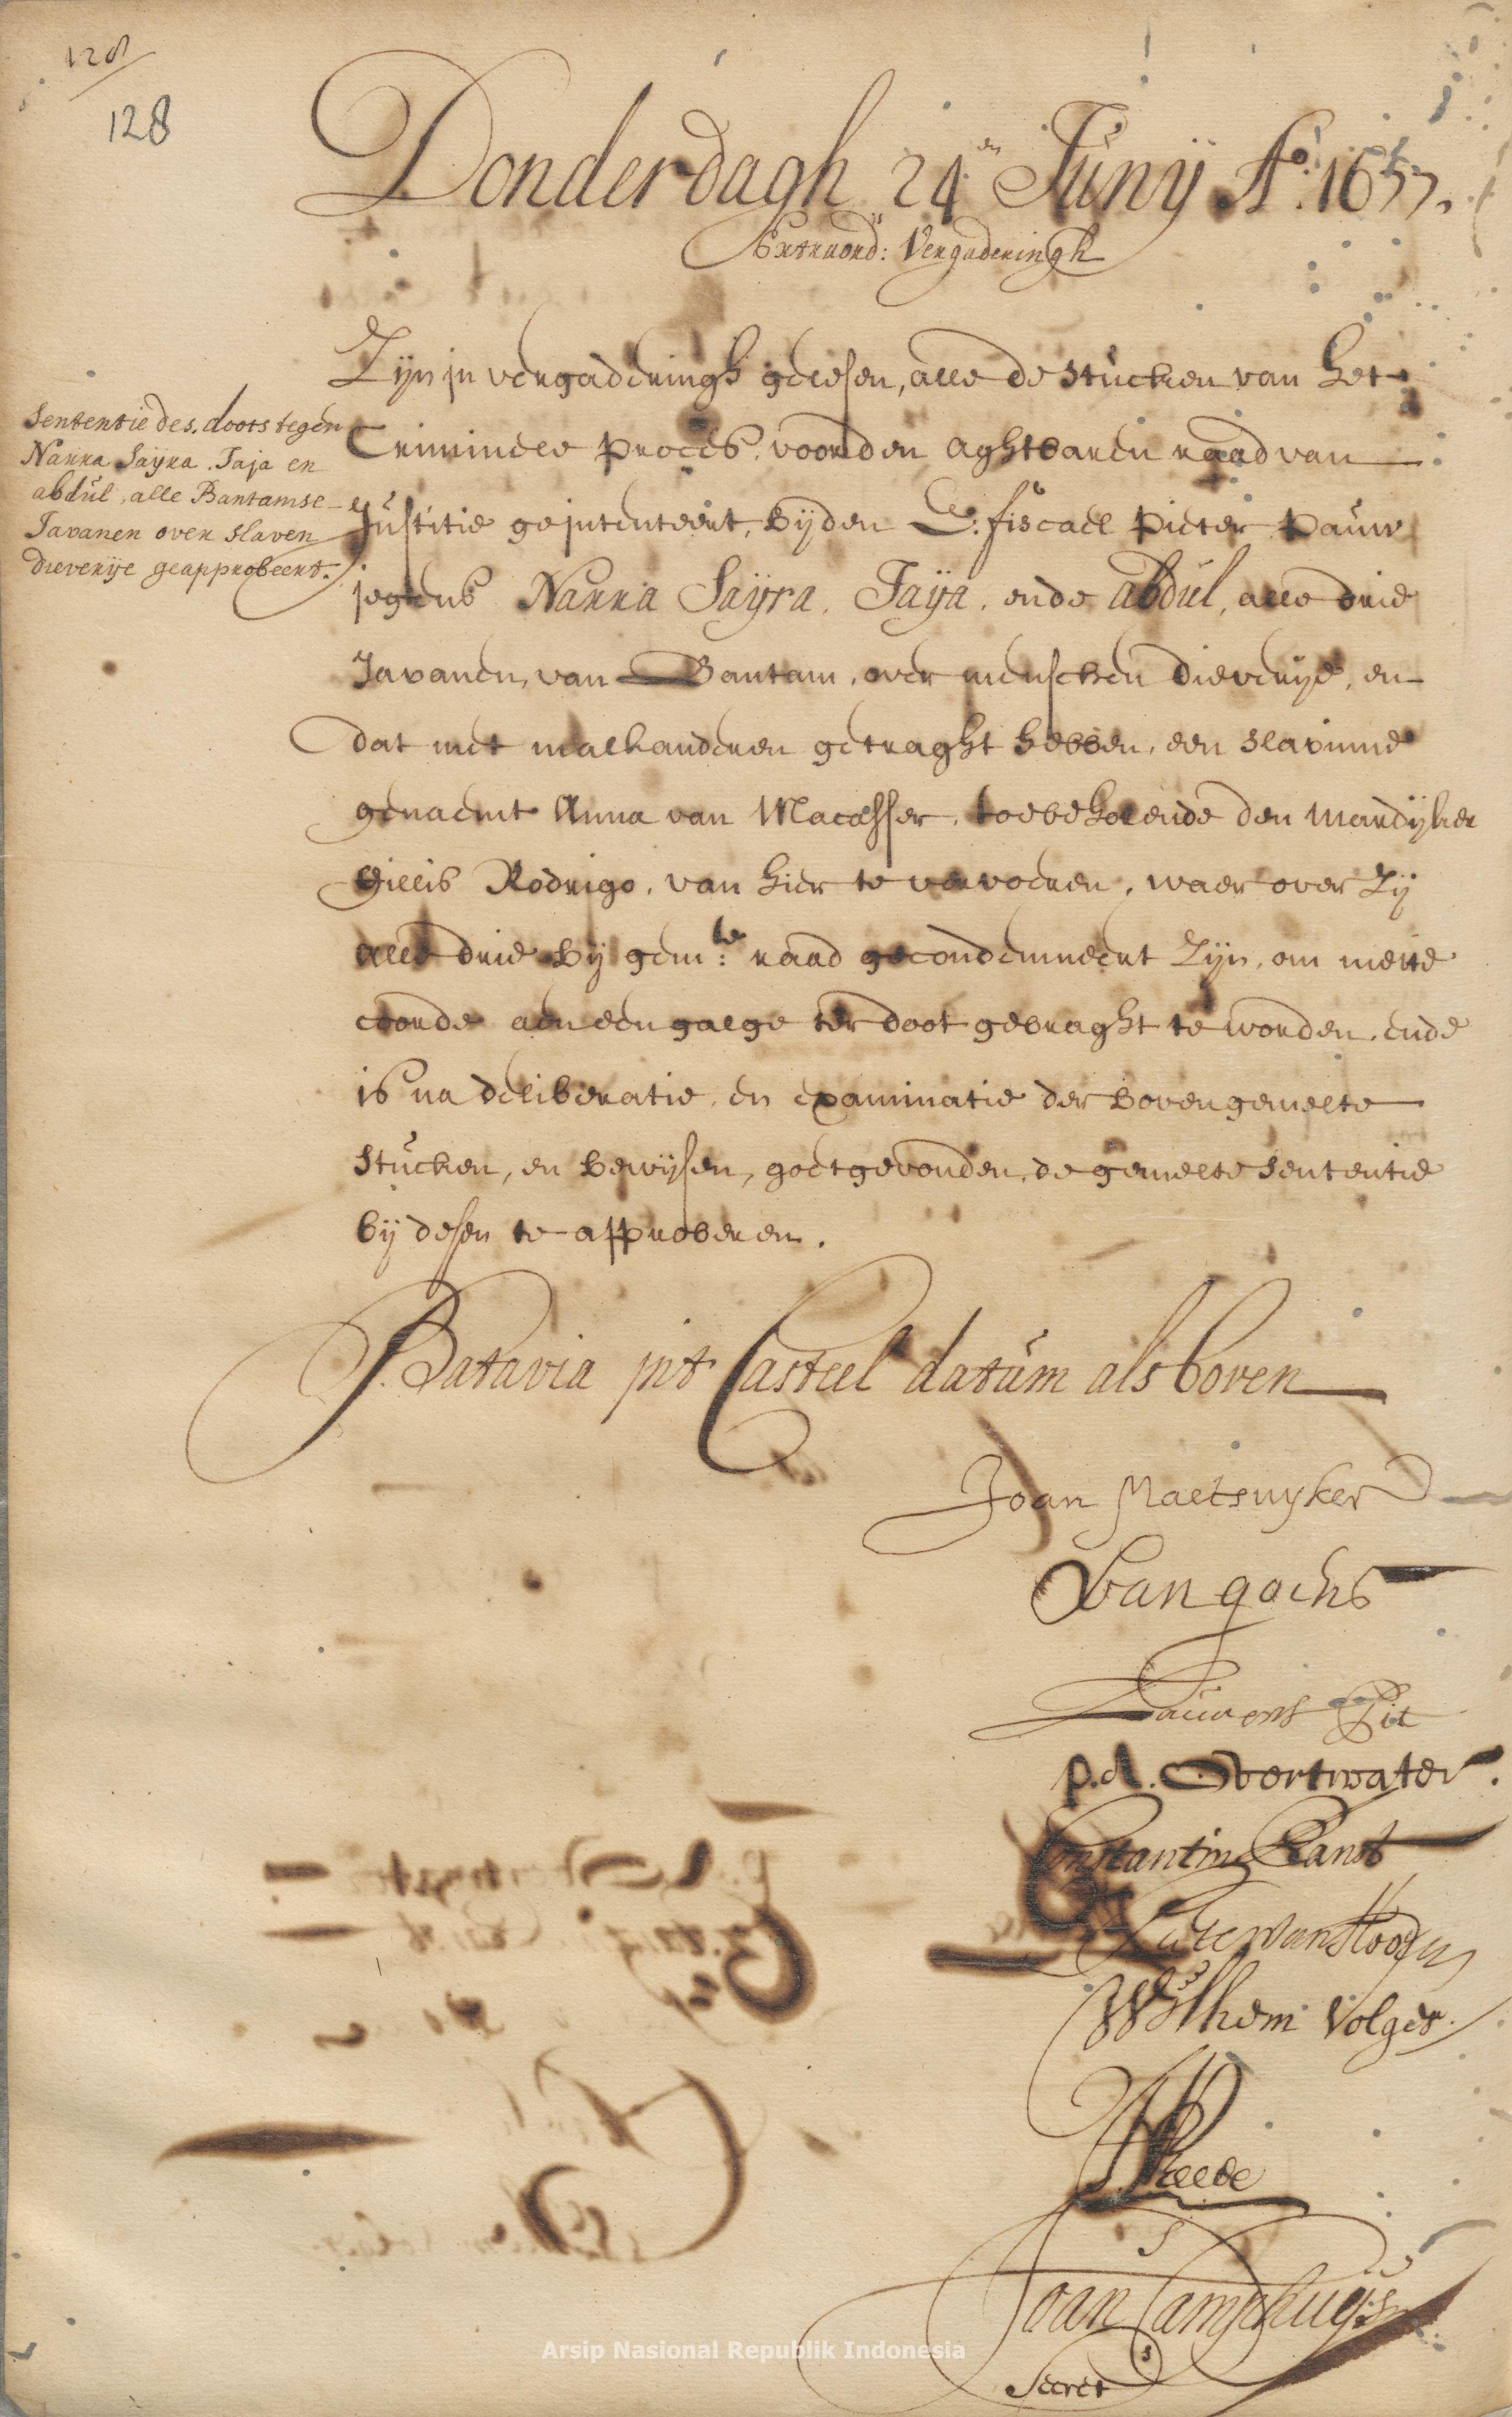 128
128
Donderdagh 24en Junij Ao: 1677.
Extraord: Vergaderingh
Sententie des doots tegen
Nanna Saÿra. Jaja en
abdul, alle Bantamse
Javanen over slaven
dieverije geapprobeert.
Zijn in vergaderingh gelesen, alle de stucken van het
Crimineele proces, voor den aghtbaren raad van
Justitie geintenteert, bijden E: fiscael Pieter Pauw
jegens Nanna Saÿra, Jaÿa, ende abdul, alle drie
Javanen, van Bantam, over menschen dieverije, en
dat met malkanderen getraght hebben, een slavinne
genaemt Anna van Macasser, toebehorende den Mardijker
Gillis Rodrigo, van hier te vervoeren, waer over zij
alle drie bij gem:te raad gecondemneert zijn, om mette
coorde aen een galge ter doot gebraght te worden, ende
is na deliberatie, en examinatie der bovengemelte
stucken, en bewijsen, goetgevonden, de gemelte sententie
bij desen te approberen.
Batavia int Casteel datum als boven
Joan Maetsuyker
R van goens
Laurens Pit
P. A. Overtwater.
Constantin Ranst
Wilhem Volger.
Joan Camphuijs
Secret
Arsip Nasional Republik Indonesia